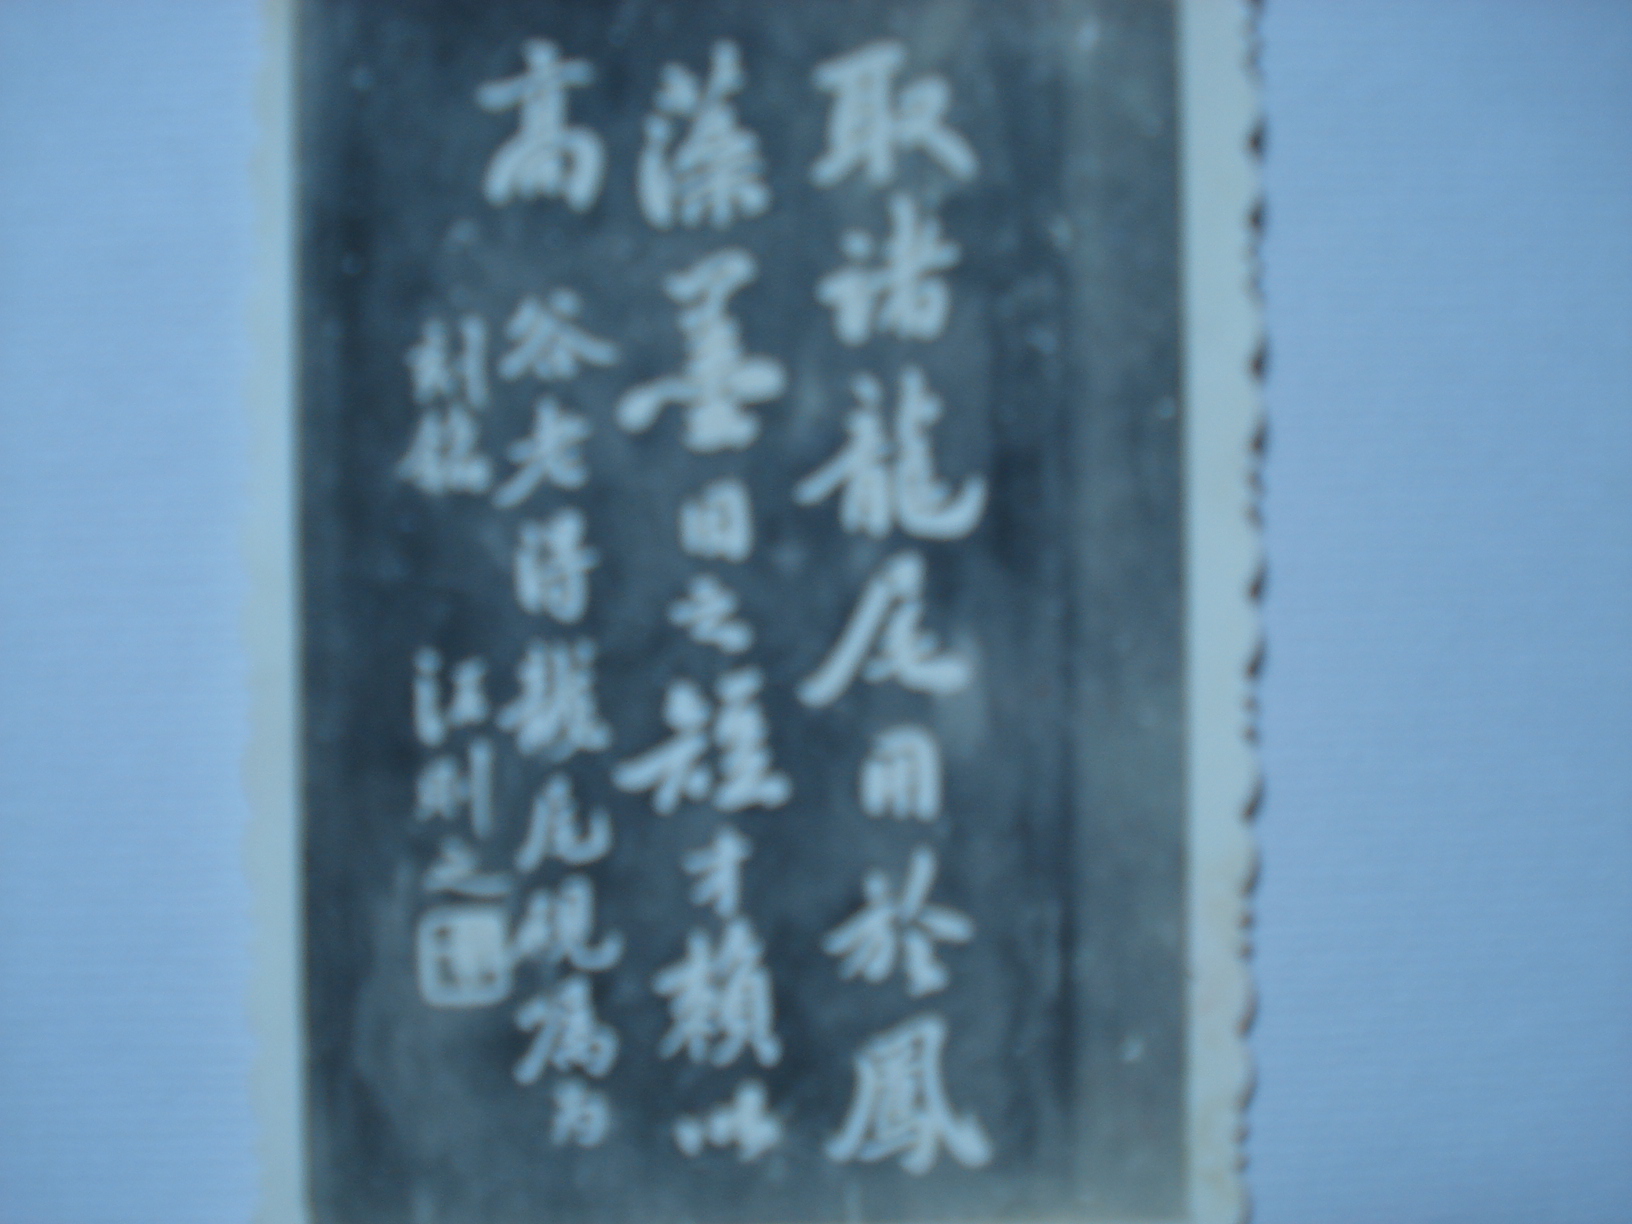 取諸龍尾用於鳳
藻墨日之短才賴以
高 谷老得龍尾硯屬為
刻銘 江 之